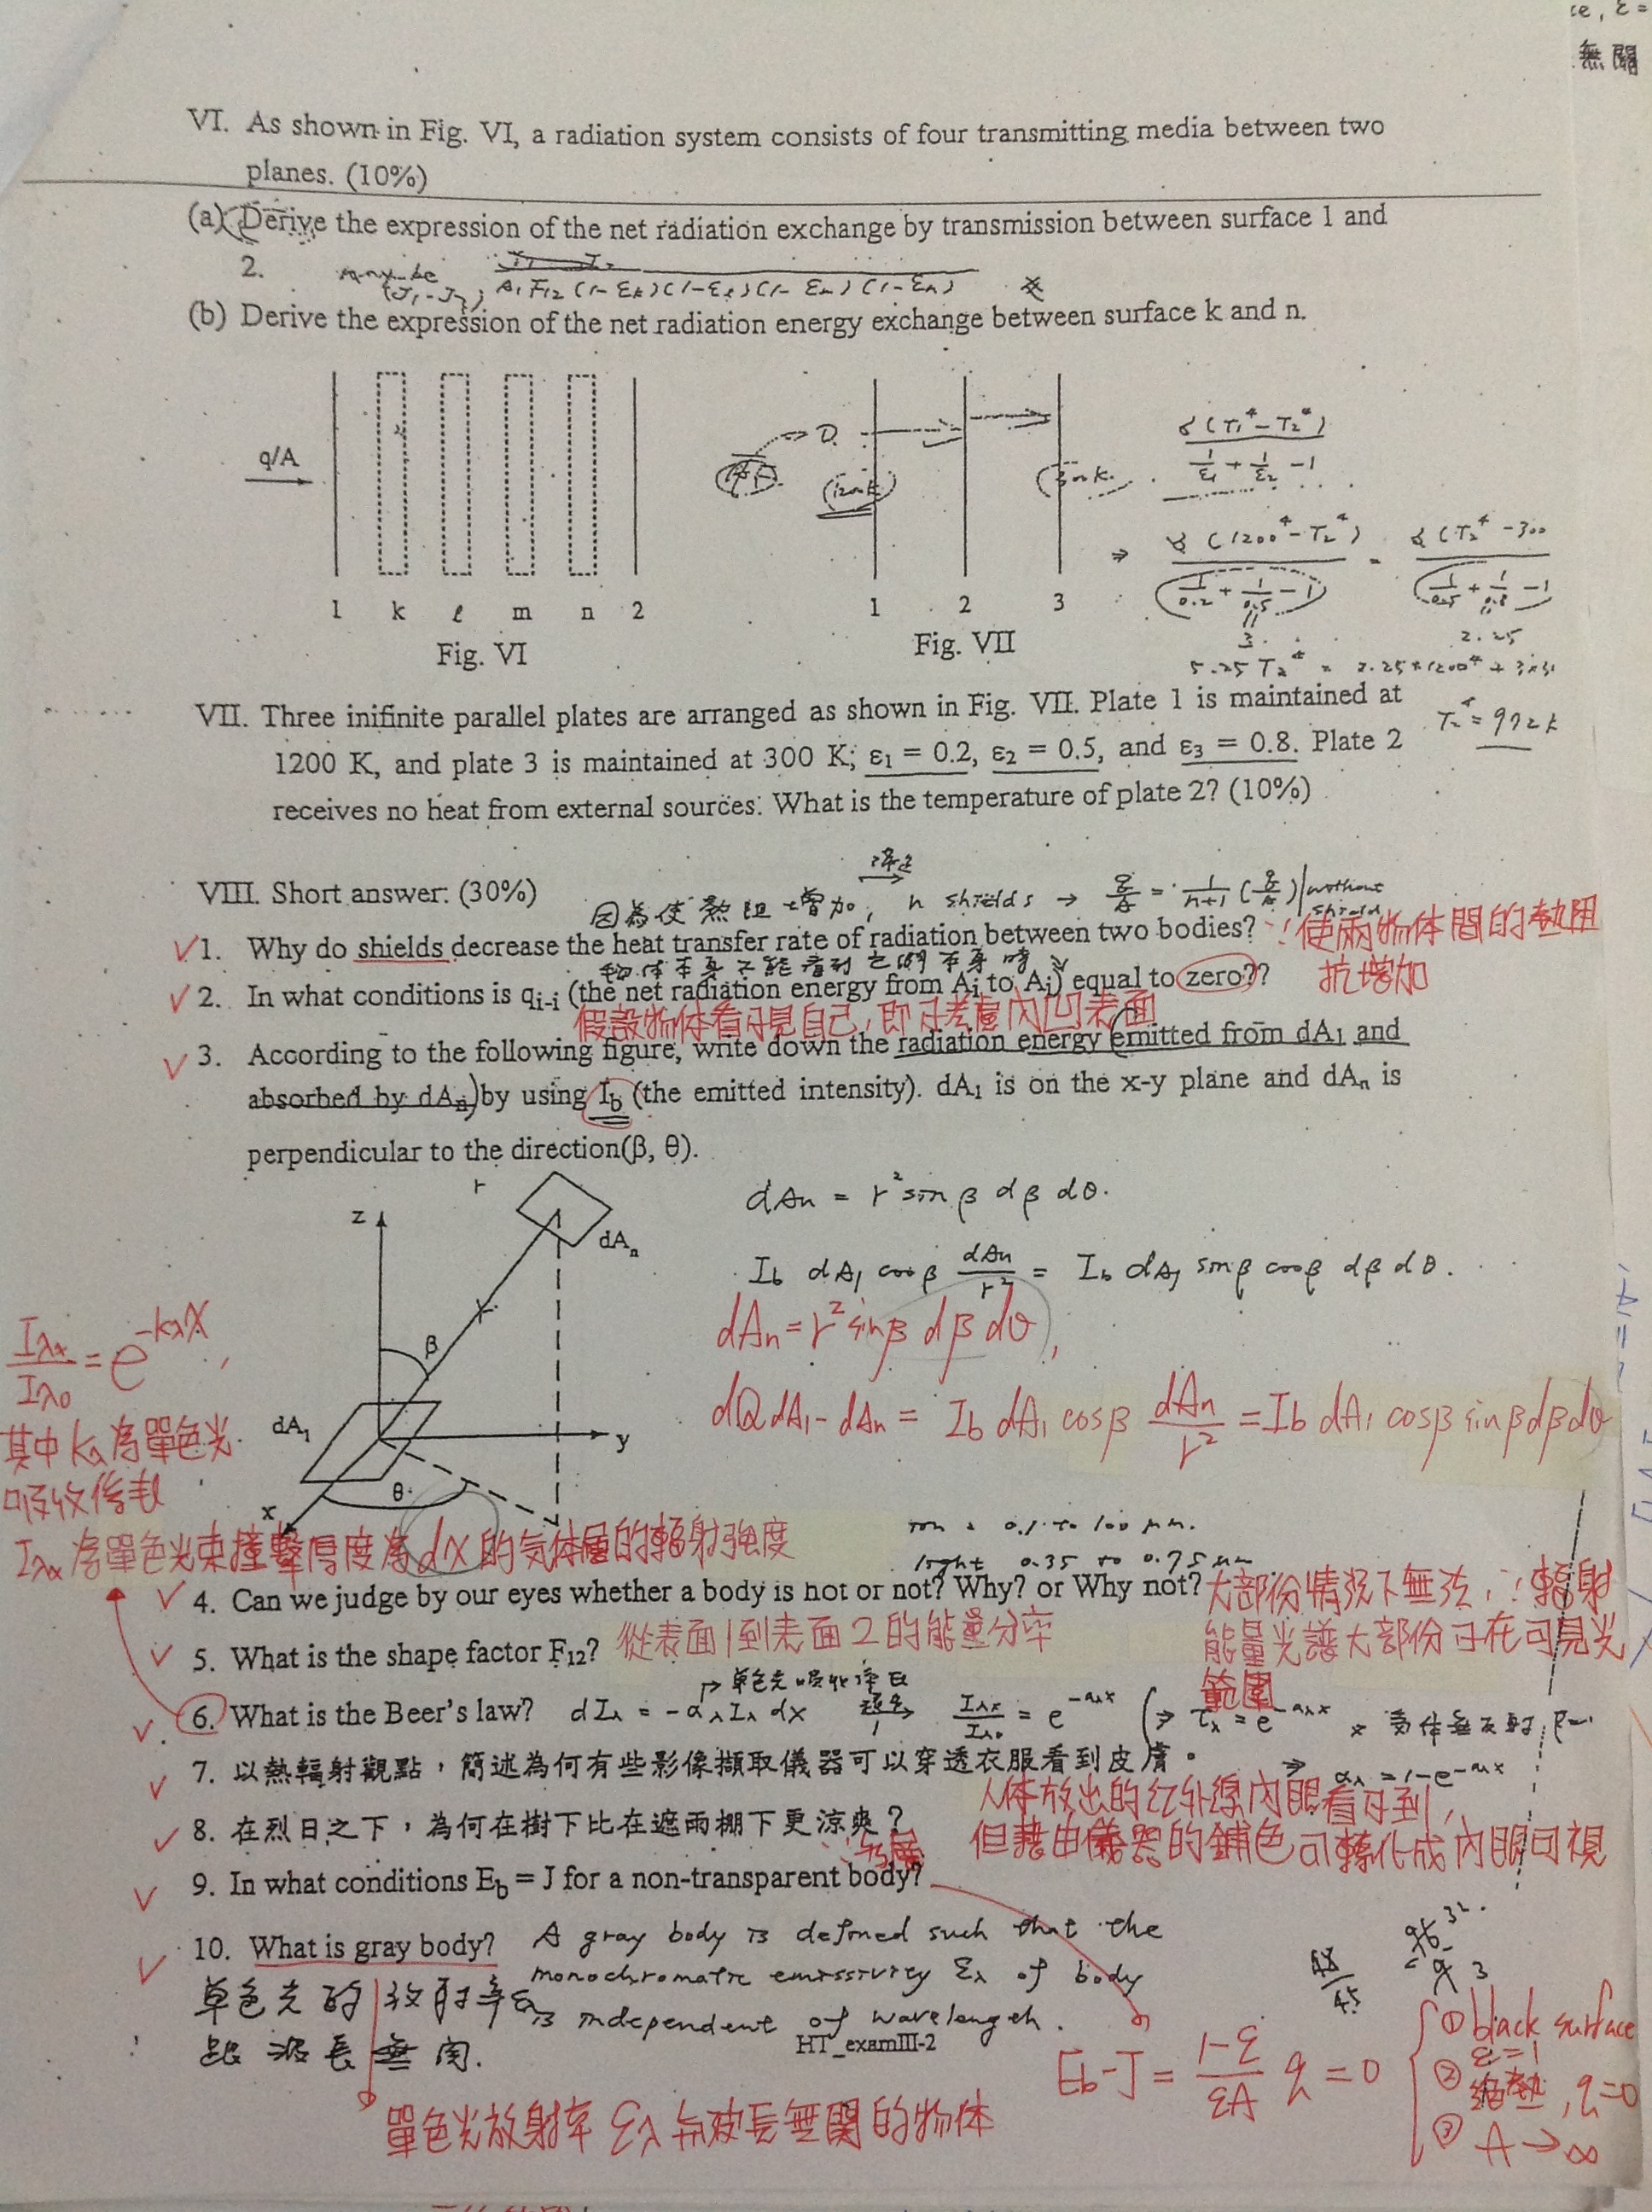 ce, ε =
無關
VI. As shown in Fig. VI, a radiation system consists of four transmitting media between two
planes. (10%)
(a) Derive the expression of the net radiation exchange by transmission between surface 1 and
2.
(J₁-J₂) A₁F₁₂(1-εk)(1-εℓ)(1-εm)(1-εn)
(b) Derive the expression of the net radiation energy exchange between surface k and n.
q/A
1 k ℓ m n 2
Fig. VI
(1200K)
(300K)
1 2 3
Fig. VII
σ(T₁⁴-T₂⁴)
1/ε₁ + 1/ε₂ -1
⇒ σ(1200⁴-T₂⁴) / (1/0.2 + 1/0.5 -1) = σ(T₂⁴-300 / (1/0.5 + 1/0.8 -1)
3 2.25
5.25 T₂⁴ = 2.25×1200⁴ + 3×3
VII. Three inifinite parallel plates are arranged as shown in Fig. VII. Plate 1 is maintained at
1200 K, and plate 3 is maintained at 300 K; ε₁ = 0.2, ε₂ = 0.5, and ε₃ = 0.8. Plate 2
receives no heat from external sources. What is the temperature of plate 2? (10%)
VIII. Short answer: (30%)
因為使熱阻增加, n shields → q/A = 1/(n+1) (q/A)|without shield
1. Why do shields decrease the heat transfer rate of radiation between two bodies? ∵使兩物体間的熱阻
抗增加
物体本身不能看到它們本身時
2. In what conditions is qi-i (the net radiation energy from Ai to Ai) equal to zero??
假設物体看不見自己,即不考慮內凹表面
3. According to the following figure, write down the radiation energy (emitted from dA₁ and
absorbed by dAn) by using Ib (the emitted intensity). dA₁ is on the x-y plane and dAn is
perpendicular to the direction(β, θ).
r
z
dAn
β
dA₁
y
θ
x
dAn = r² sinβ dβ dθ.
Ib dA₁ cosβ dAn/r² = Ib dA₁ sinβ cosβ dβ dθ.
dAn = r² sinβ dβ dθ,
dQ dA₁-dAn = Ib dA₁ cosβ dAn/r² = Ib dA₁ cosβ sinβ dβ dθ
Iλx/Iλ0 = e^-kλX,
其中kλ為單色光
吸收係數
Iλx為單色光束撞擊厚度為dx的気体層的輻射強度
0.1 to 100 μm.
light 0.35 to 0.75 μm
4. Can we judge by our eyes whether a body is hot or not? Why? or Why not? 大部份情況下無法,∵輻射
能量光譜大部份不在可見光
範圍
5. What is the shape factor F₁₂? 從表面1到表面2的能量分率
單色光吸收率
6. What is the Beer's law? dIλ = -αλ Iλ dx 積分→ Iλx/Iλ0 = e^-aλx (⇒ τλ = e^-aλx
⇒ αλ = 1-e^-aλx
7. 以熱輻射觀點，簡述為何有些影像擷取儀器可以穿透衣服看到皮膚。
人体放出的紅外線肉眼看不到,
但藉由儀器的鋪色可轉化成肉眼可視
8. 在烈日之下，為何在樹下比在遮雨棚下更涼爽？
9. In what conditions Eb = J for a non-transparent body?
10. What is gray body? A gray body is defined such that the
monochromatic emissivity ελ of body
is independent of wavelength.
單色光的放射率ελ
跟波長無関.
HT_examIII-2
Eb-J = (1-ε)/(εA) q = 0
① black surface
ε=1
② 絕熱, q=0
③ A→∞
單色光放射率 ελ 與波長無関的物体